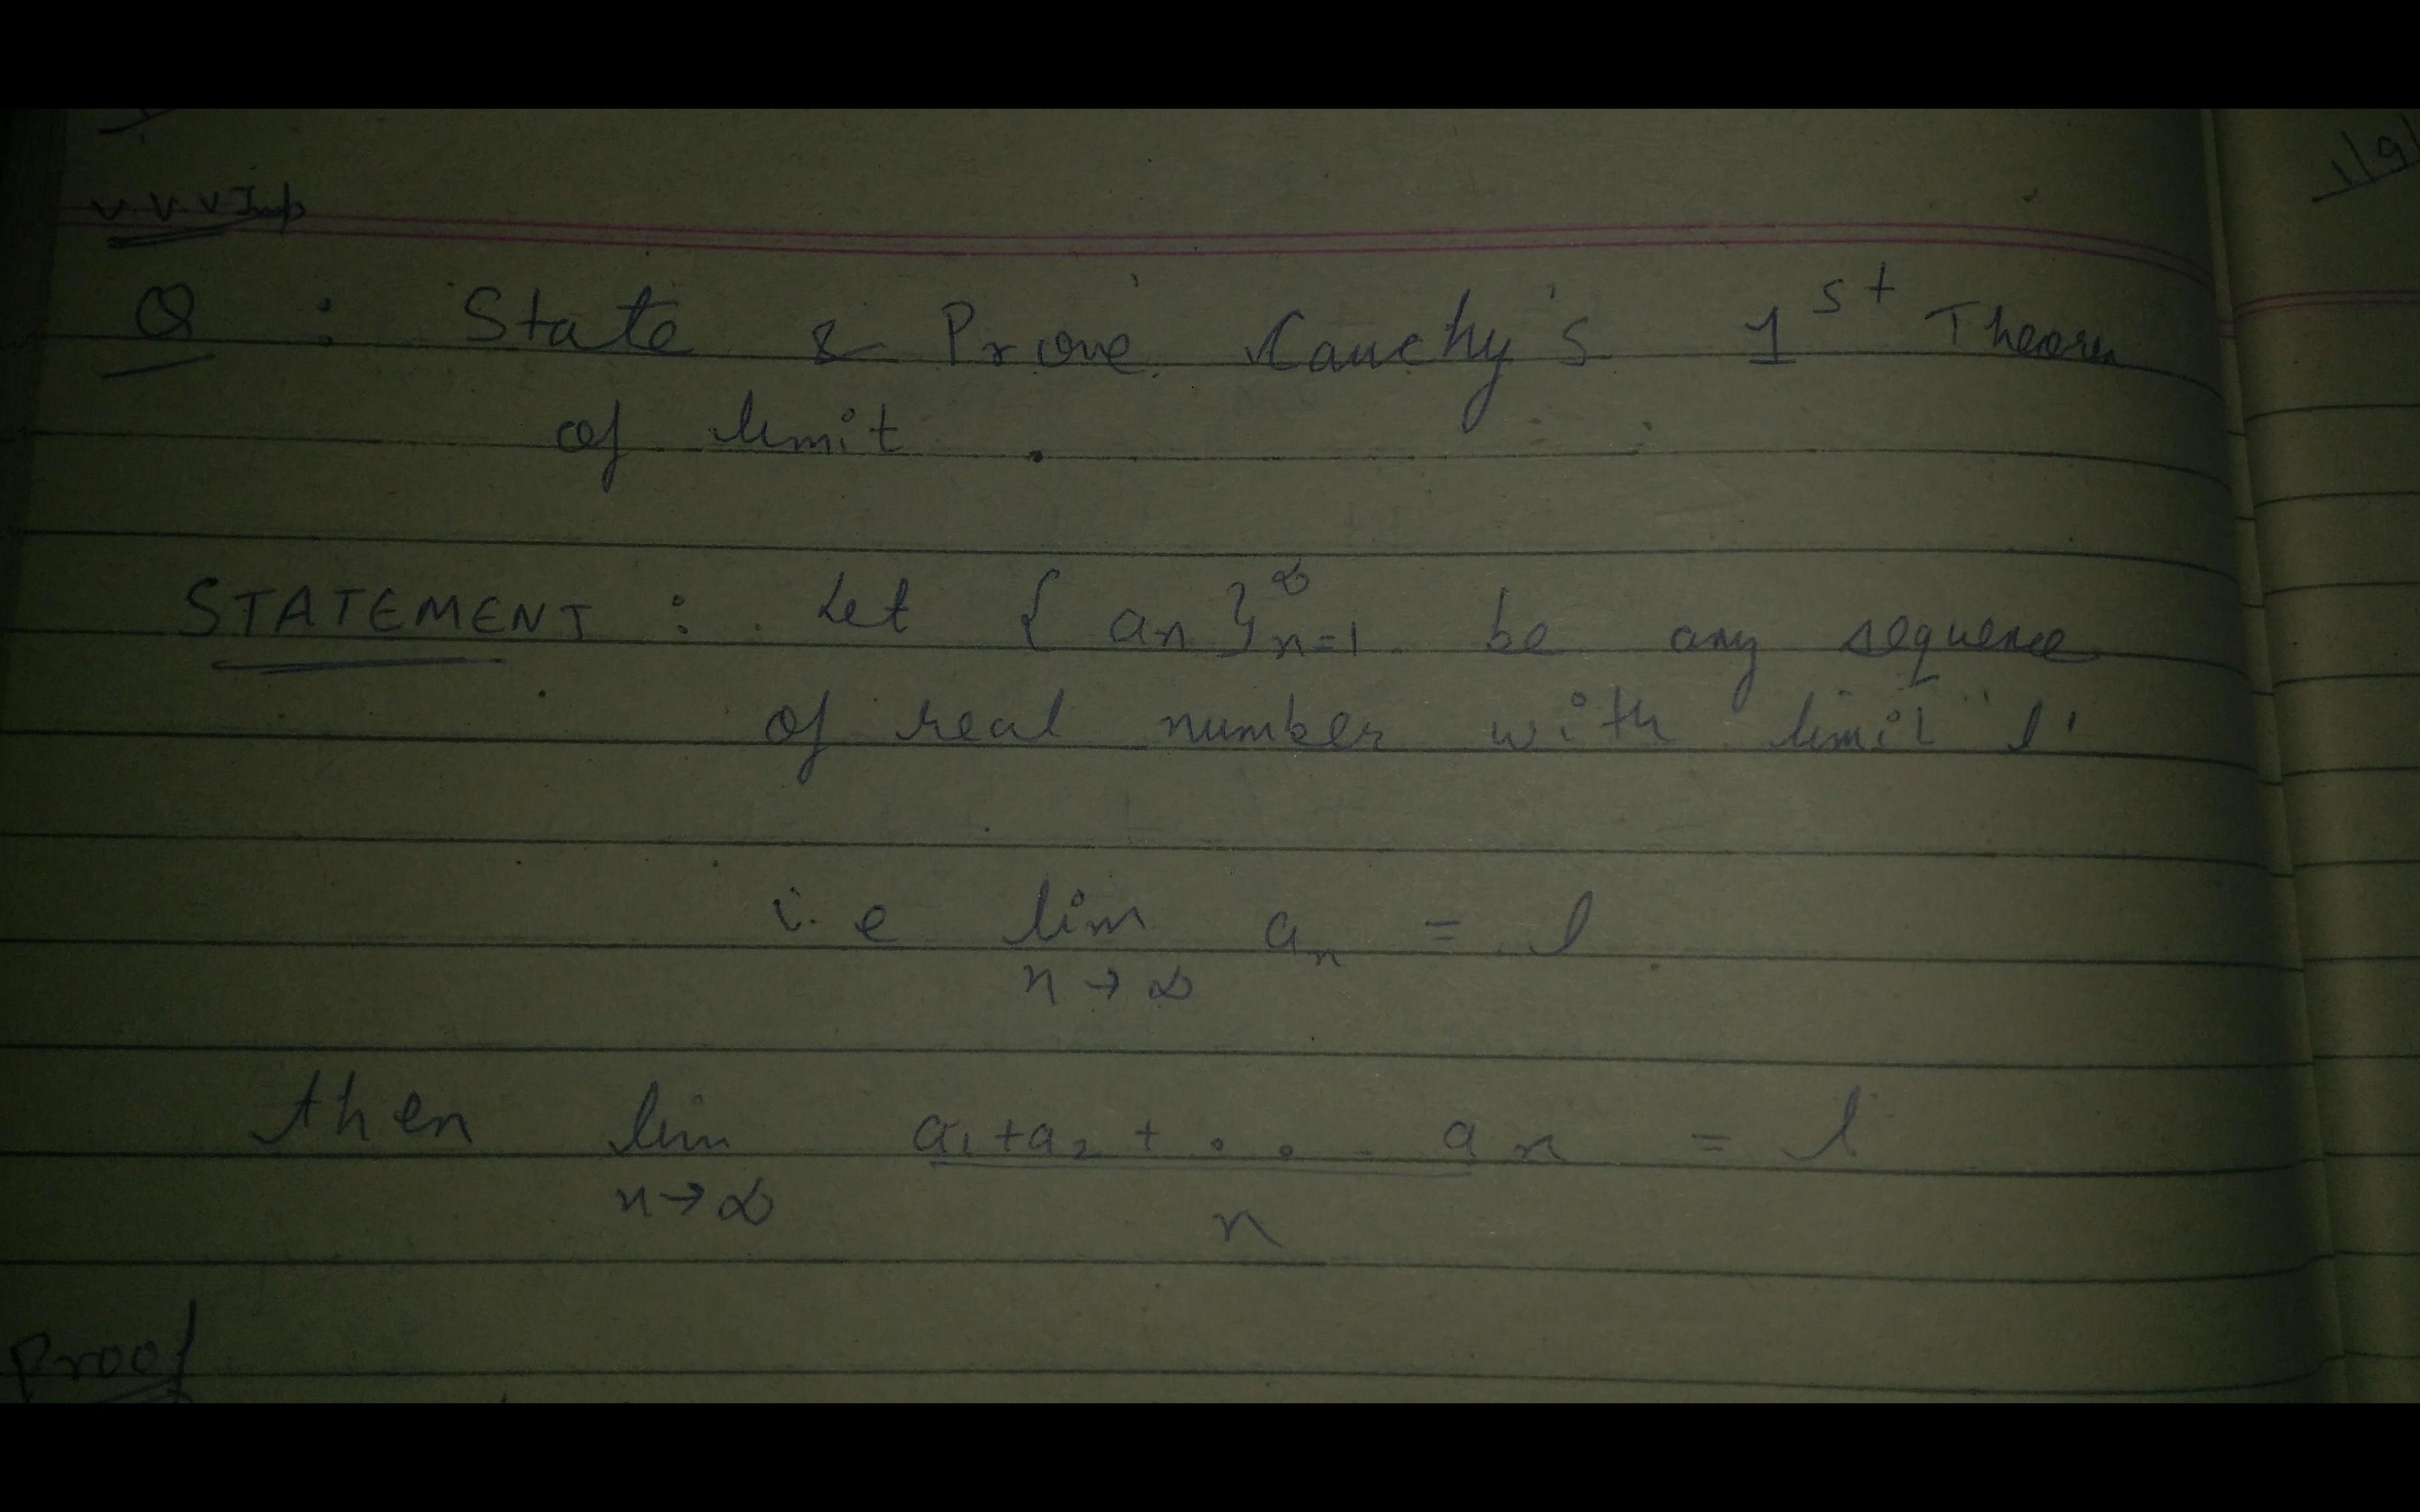 V V V Imp
1/9/
Q : State & Prove Cauchy's 1st Theorem
of limit .
STATEMENT : Let { an }∞n=1 be any sequence
of real number with limit "l'
i.e lim an = l
n→∞
then lim a1+a2+ . . . an = l
n→∞ n
Proof